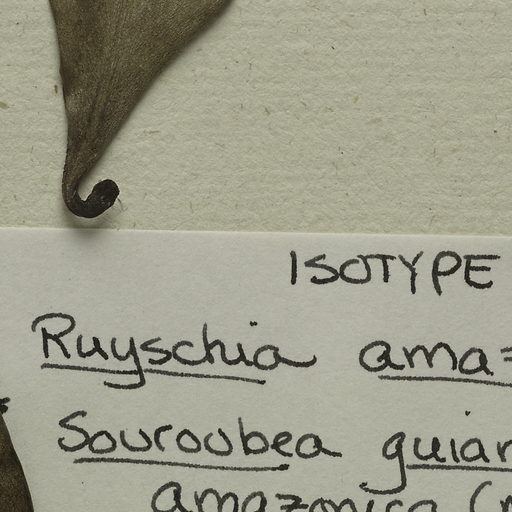 ISOTYPE
Ruyschia ama
Souroubea guian
amazonica (